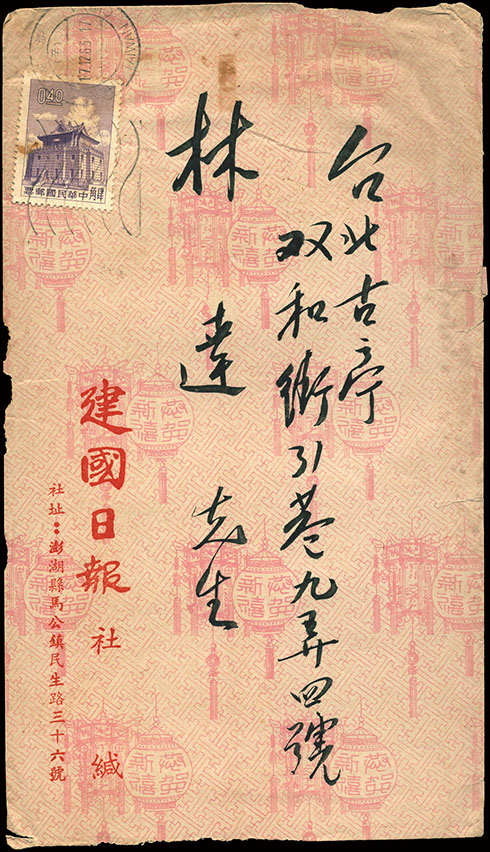 台北古亭
双和街31巷九弄四號
林達先生
建國日報社緘
社址：澎湖縣馬公鎮民生路三十六號
0.40
中華民國郵票
恭賀新禧
17.12.63.17